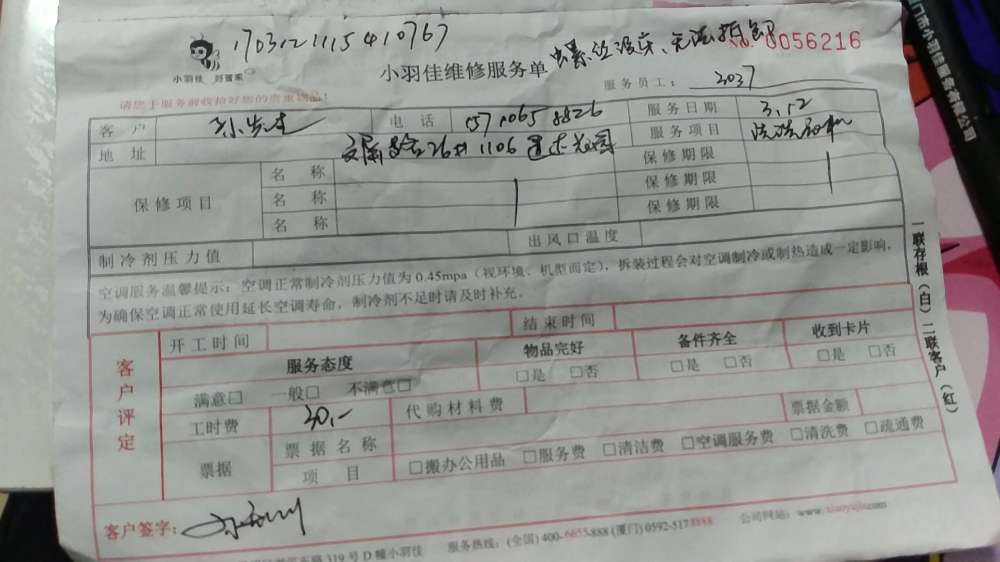 1703121115410767
小羽佳 好管家
小羽佳维修服务单
No. 0056216
请您于服务前收拾好您的贵重物品!
服务员工: 3037
客户 孙先生 电话 服务日期 3.12
地址 26# 1106 服务项目
保修项目 名称 保修期限
名称 保修期限
名称 保修期限
制冷剂压力值 出风口温度
空调服务温馨提示:空调正常制冷剂压力值为0.45mpa(视环境、机型而定),拆装过程会对空调制冷或制热造成一定影响,
为确保空调正常使用延长空调寿命,制冷剂不足时请及时补充。
客户评定
开工时间 结束时间
服务态度 物品完好 备件齐全 收到卡片
满意□ 一般□ 不满意□ □是 □否 □是 □否 □是 □否
工时费 30,- 代购材料费 票据金额
票据 票据名称
项目 □搬办公用品 □服务费 □清洁费 □空调服务费 □清洗费 □疏通费
客户签字:
319号D幢小羽佳 服务热线:(全国)400-6655-888 (厦门)0592-5178888 公司网站:www.xiaoyujia.com
一联存根(白) 二联客户(红)
门市小羽佳家政服务有限公司